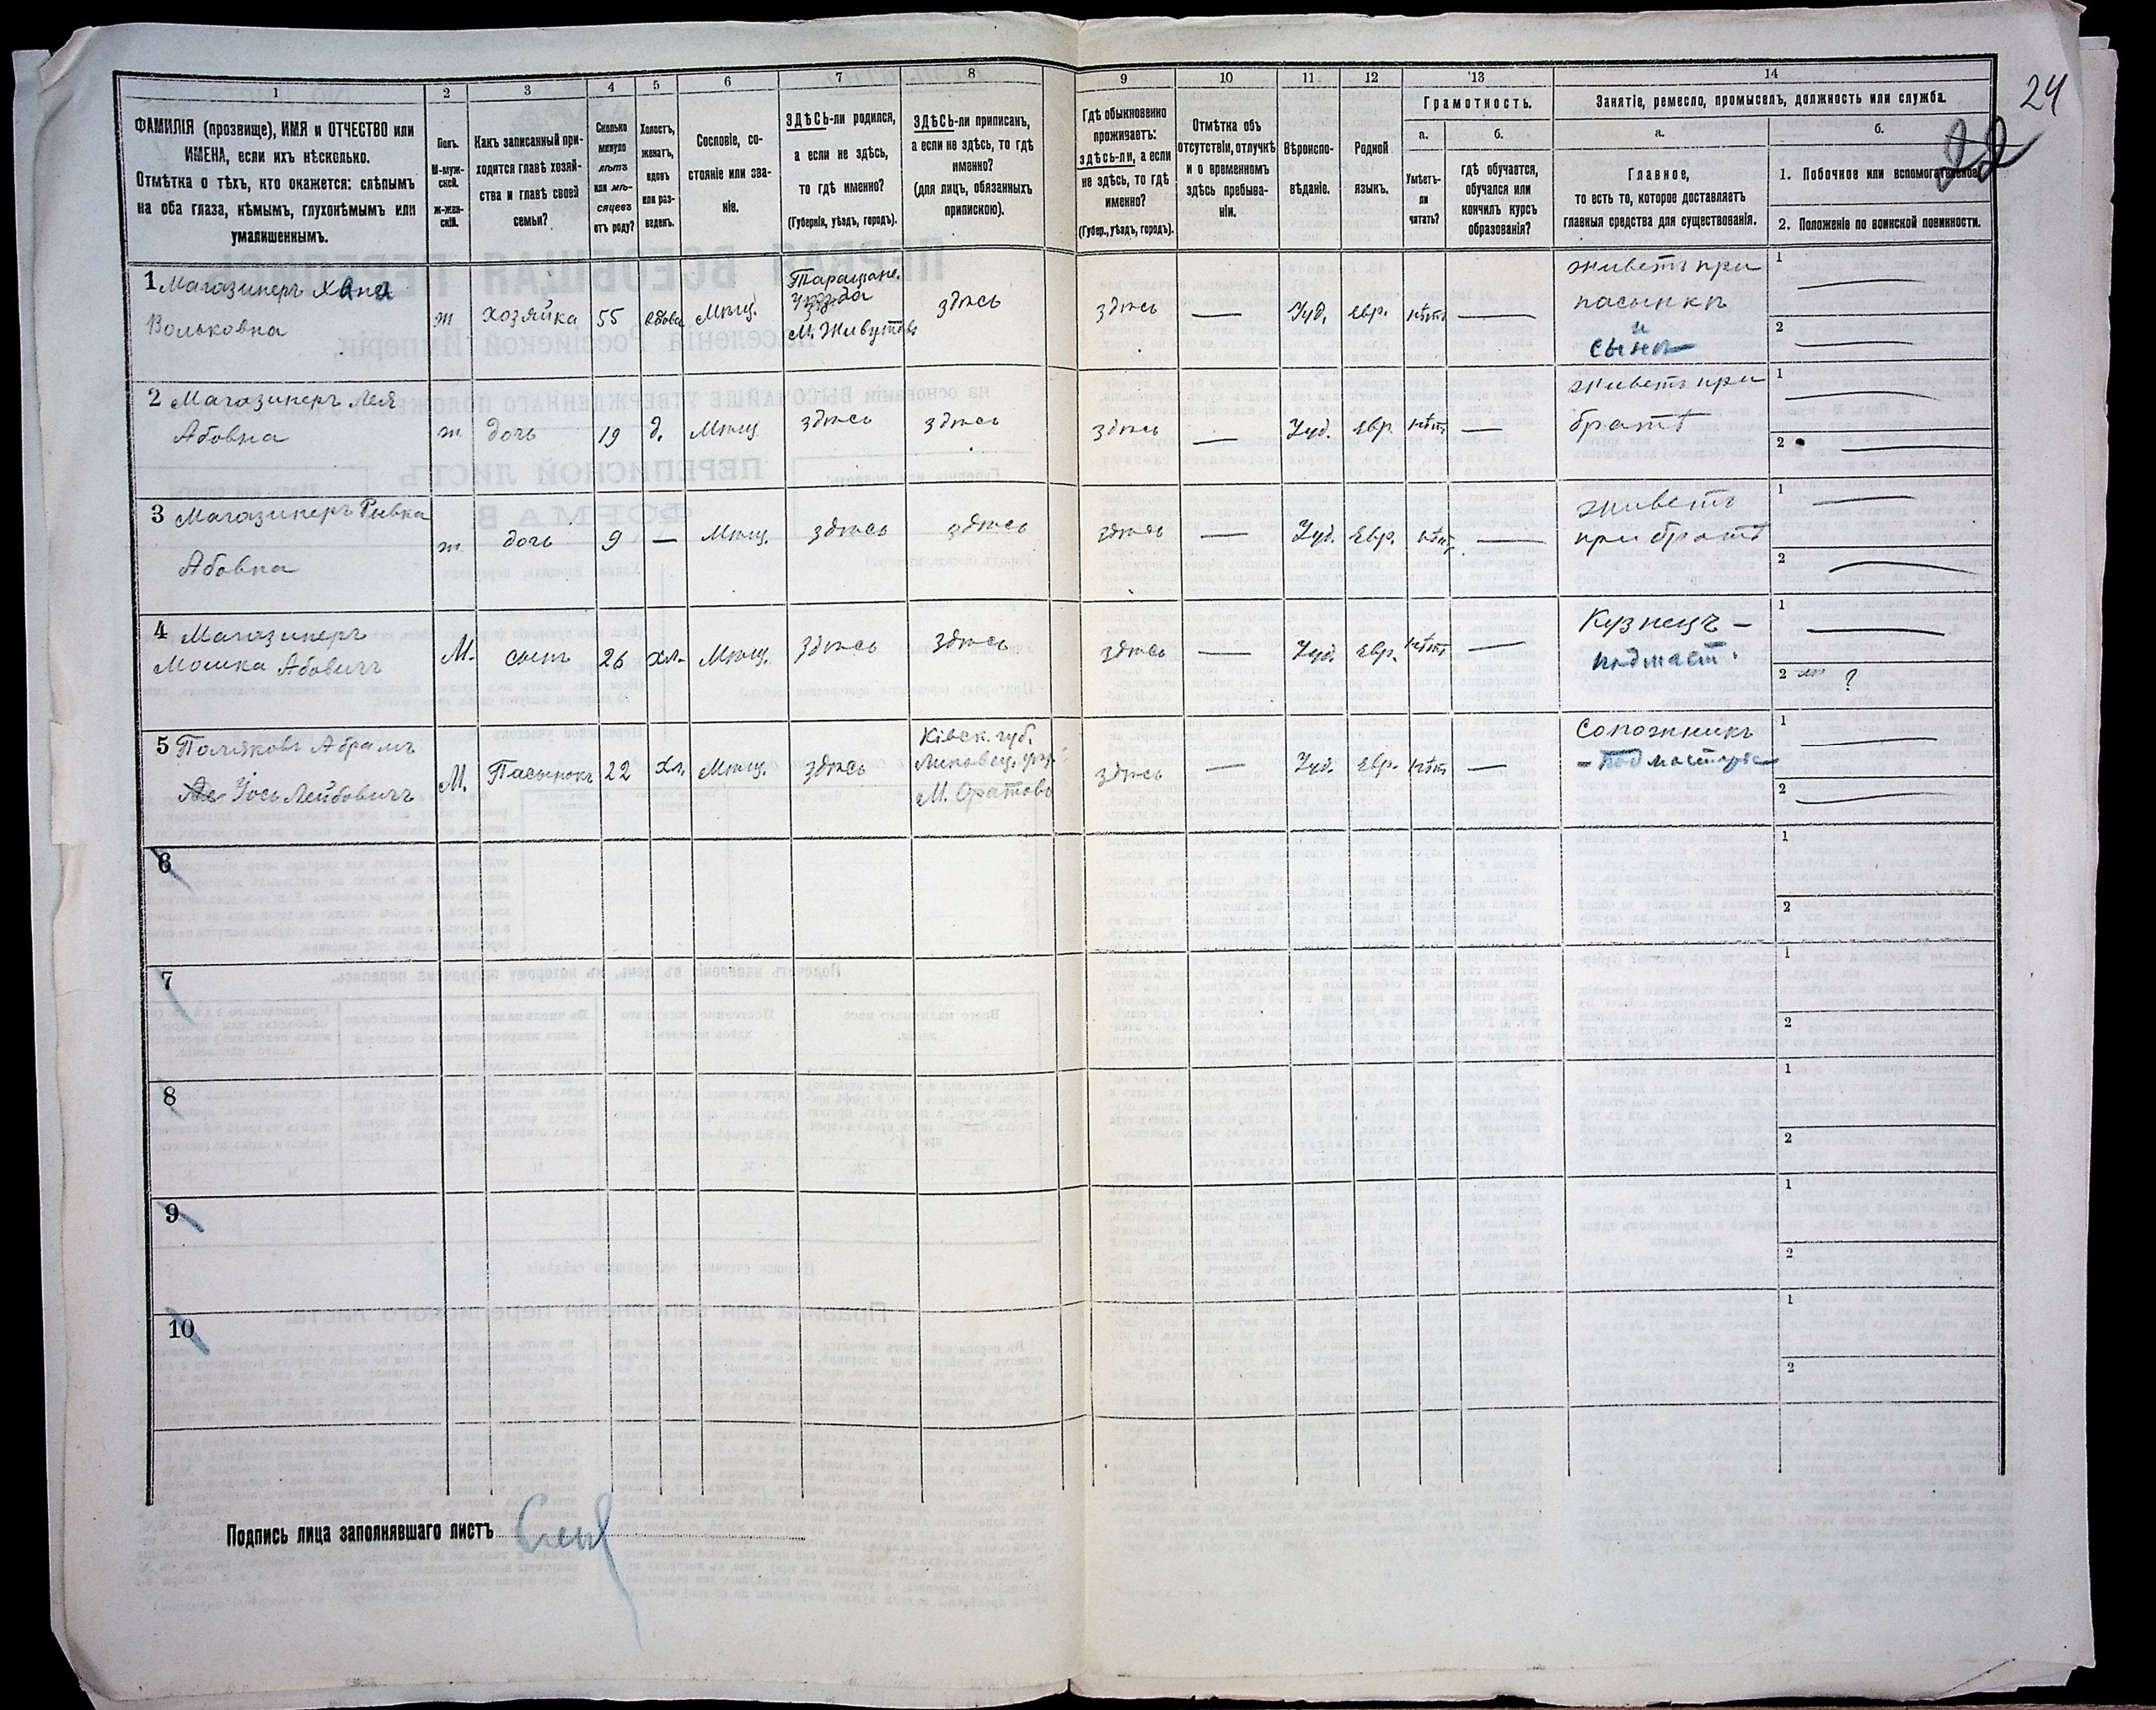 24
22
1
2
3
4
5
6
7
8
9
10
11
12
13
14
ФАМИЛІЯ (прозвище), ИМЯ и ОТЧЕСТВО или
ИМЕНА, если ихъ нѣсколько.
Отмѣтка о тѣхъ, кто окажется: слѣпымъ
на оба глаза, нѣмымъ, глухонѣмымъ или
умалишеннымъ.
Полъ.
М-муж-
ской.
Ж-жен-
скій.
Какъ записанный при-
ходится главѣ хозяй-
ства и главѣ своей
семьи?
Сколько
минуло
лѣтъ
или мѣ-
сяцевъ
отъ роду?
Холостъ,
женатъ,
вдовъ
или раз-
веденъ.
Сословіе, со-
стояніе или зва-
ніе.
ЗДѢСЬ-ли родился,
а если не здѣсь,
то гдѣ именно?
(Губернія, уѣздъ, городъ).
ЗДѢСЬ-ли приписанъ,
а если не здѣсь, то гдѣ
именно?
(для лицъ, обязанныхъ
припиской).
Гдѣ обыкновенно
проживаетъ:
здѣсь-ли, а если
не здѣсь, то гдѣ
именно?
(Губер., уѣздъ, городъ).
Отмѣтка объ
отсутствіи, отлучкѣ
и о временномъ
здѣсь пребыва-
ніи.
Вѣроиспо-
вѣданіе.
Родной
языкъ.
Грамотность.
а.
б.
Умѣетъ-
ли
читать?
гдѣ обучается,
обучался или
кончилъ курсъ
образованія?
Занятіе, ремесло, промыселъ, должность или служба.
а.
б.
Главное,
то есть то, которое доставляетъ
главныя средства для существованія.
1. Побочное или вспомогательное.
2. Положеніе по воинской повинности.
1 Магазинеръ Хана
Вольковна
ж
хозяйка
55
вдова
Мѣщ.
Таращан.
уѣзда
М. Животовъ
здѣсь
здѣсь
—
Іуд.
евр.
нѣтъ
—
живетъ при
пасынкѣ
и
сынѣ
1 —
2 —
2 Магазинеръ Лея
Абовна
ж.
дочь
19
д.
Мѣщ.
здѣсь
здѣсь
здѣсь
—
Іуд.
евр
нѣтъ
—
живетъ при
братѣ
1 —
2 —
3 Магазинеръ Рывка
Абовна
ж.
дочь
9
—
Мѣщ.
здѣсь
здѣсь
здѣсь
—
Іуд.
Евр.
нѣтъ
—
живетъ
при братѣ
1 —
2 —
4 Магазинеръ
Мошка Абовичъ
М.
сынъ
26
хл.
Мѣщ.
здѣсь
здѣсь
здѣсь
—
Іуд.
евр.
нѣтъ
—
Кузнецъ —
подмаст.
1 —
2 ?
5 Поляковъ Абрамъ
Іось Лейбовичъ
М.
Пасынокъ
22
хл.
Мѣщ.
здѣсь
Кіевск. губ.
Липовец. уѣз.
М. Оратовъ
здѣсь
—
Іуд.
евр.
нѣтъ
—
Сапожникъ
— подмастерье
1 —
2 —
6
1
2
7
1
2
8
1
2
9
1
2
10
1
2
Подпись лица заполнявшаго листъ